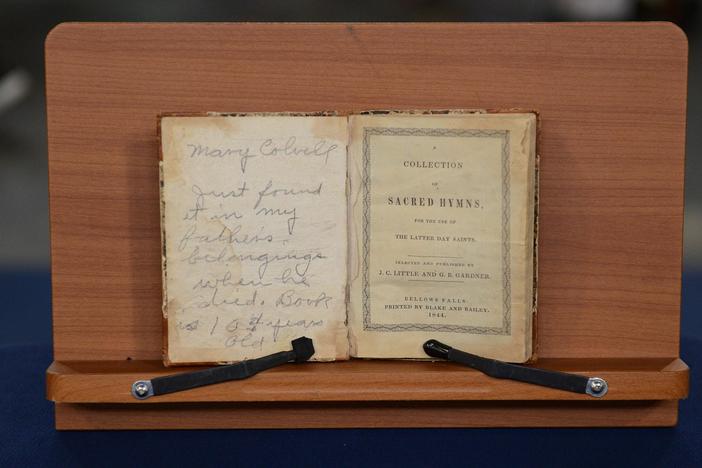 Mary Colvell
Just found
it in my
father's
belongings
when he
died. Book
is years
old
A
COLLECTION
OF
SACRED HYMNS,
FOR THE USE OF
THE LATTER DAY SAINTS.
SELECTED AND PUBLISHED BY
J. C. LITTLE AND G. B. GARDNER.
BELLOWS FALLS:
PRINTED BY BLAKE AND BAILEY.
1844.